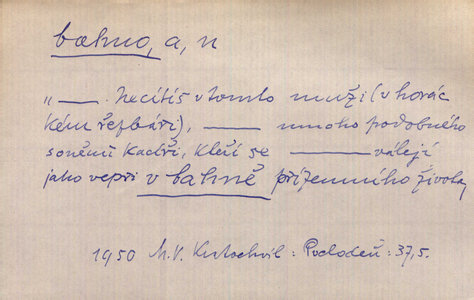 bahno, a, n
„ —. Necítíš v tomto muži (v horác
kém řezbáři), — mnoho podobného
s oněmi kteří, kteří se — válejí
jako vepři v bahně přízemního života,
1950 M.V. Kratochvíl: Podloděň: 37,5.